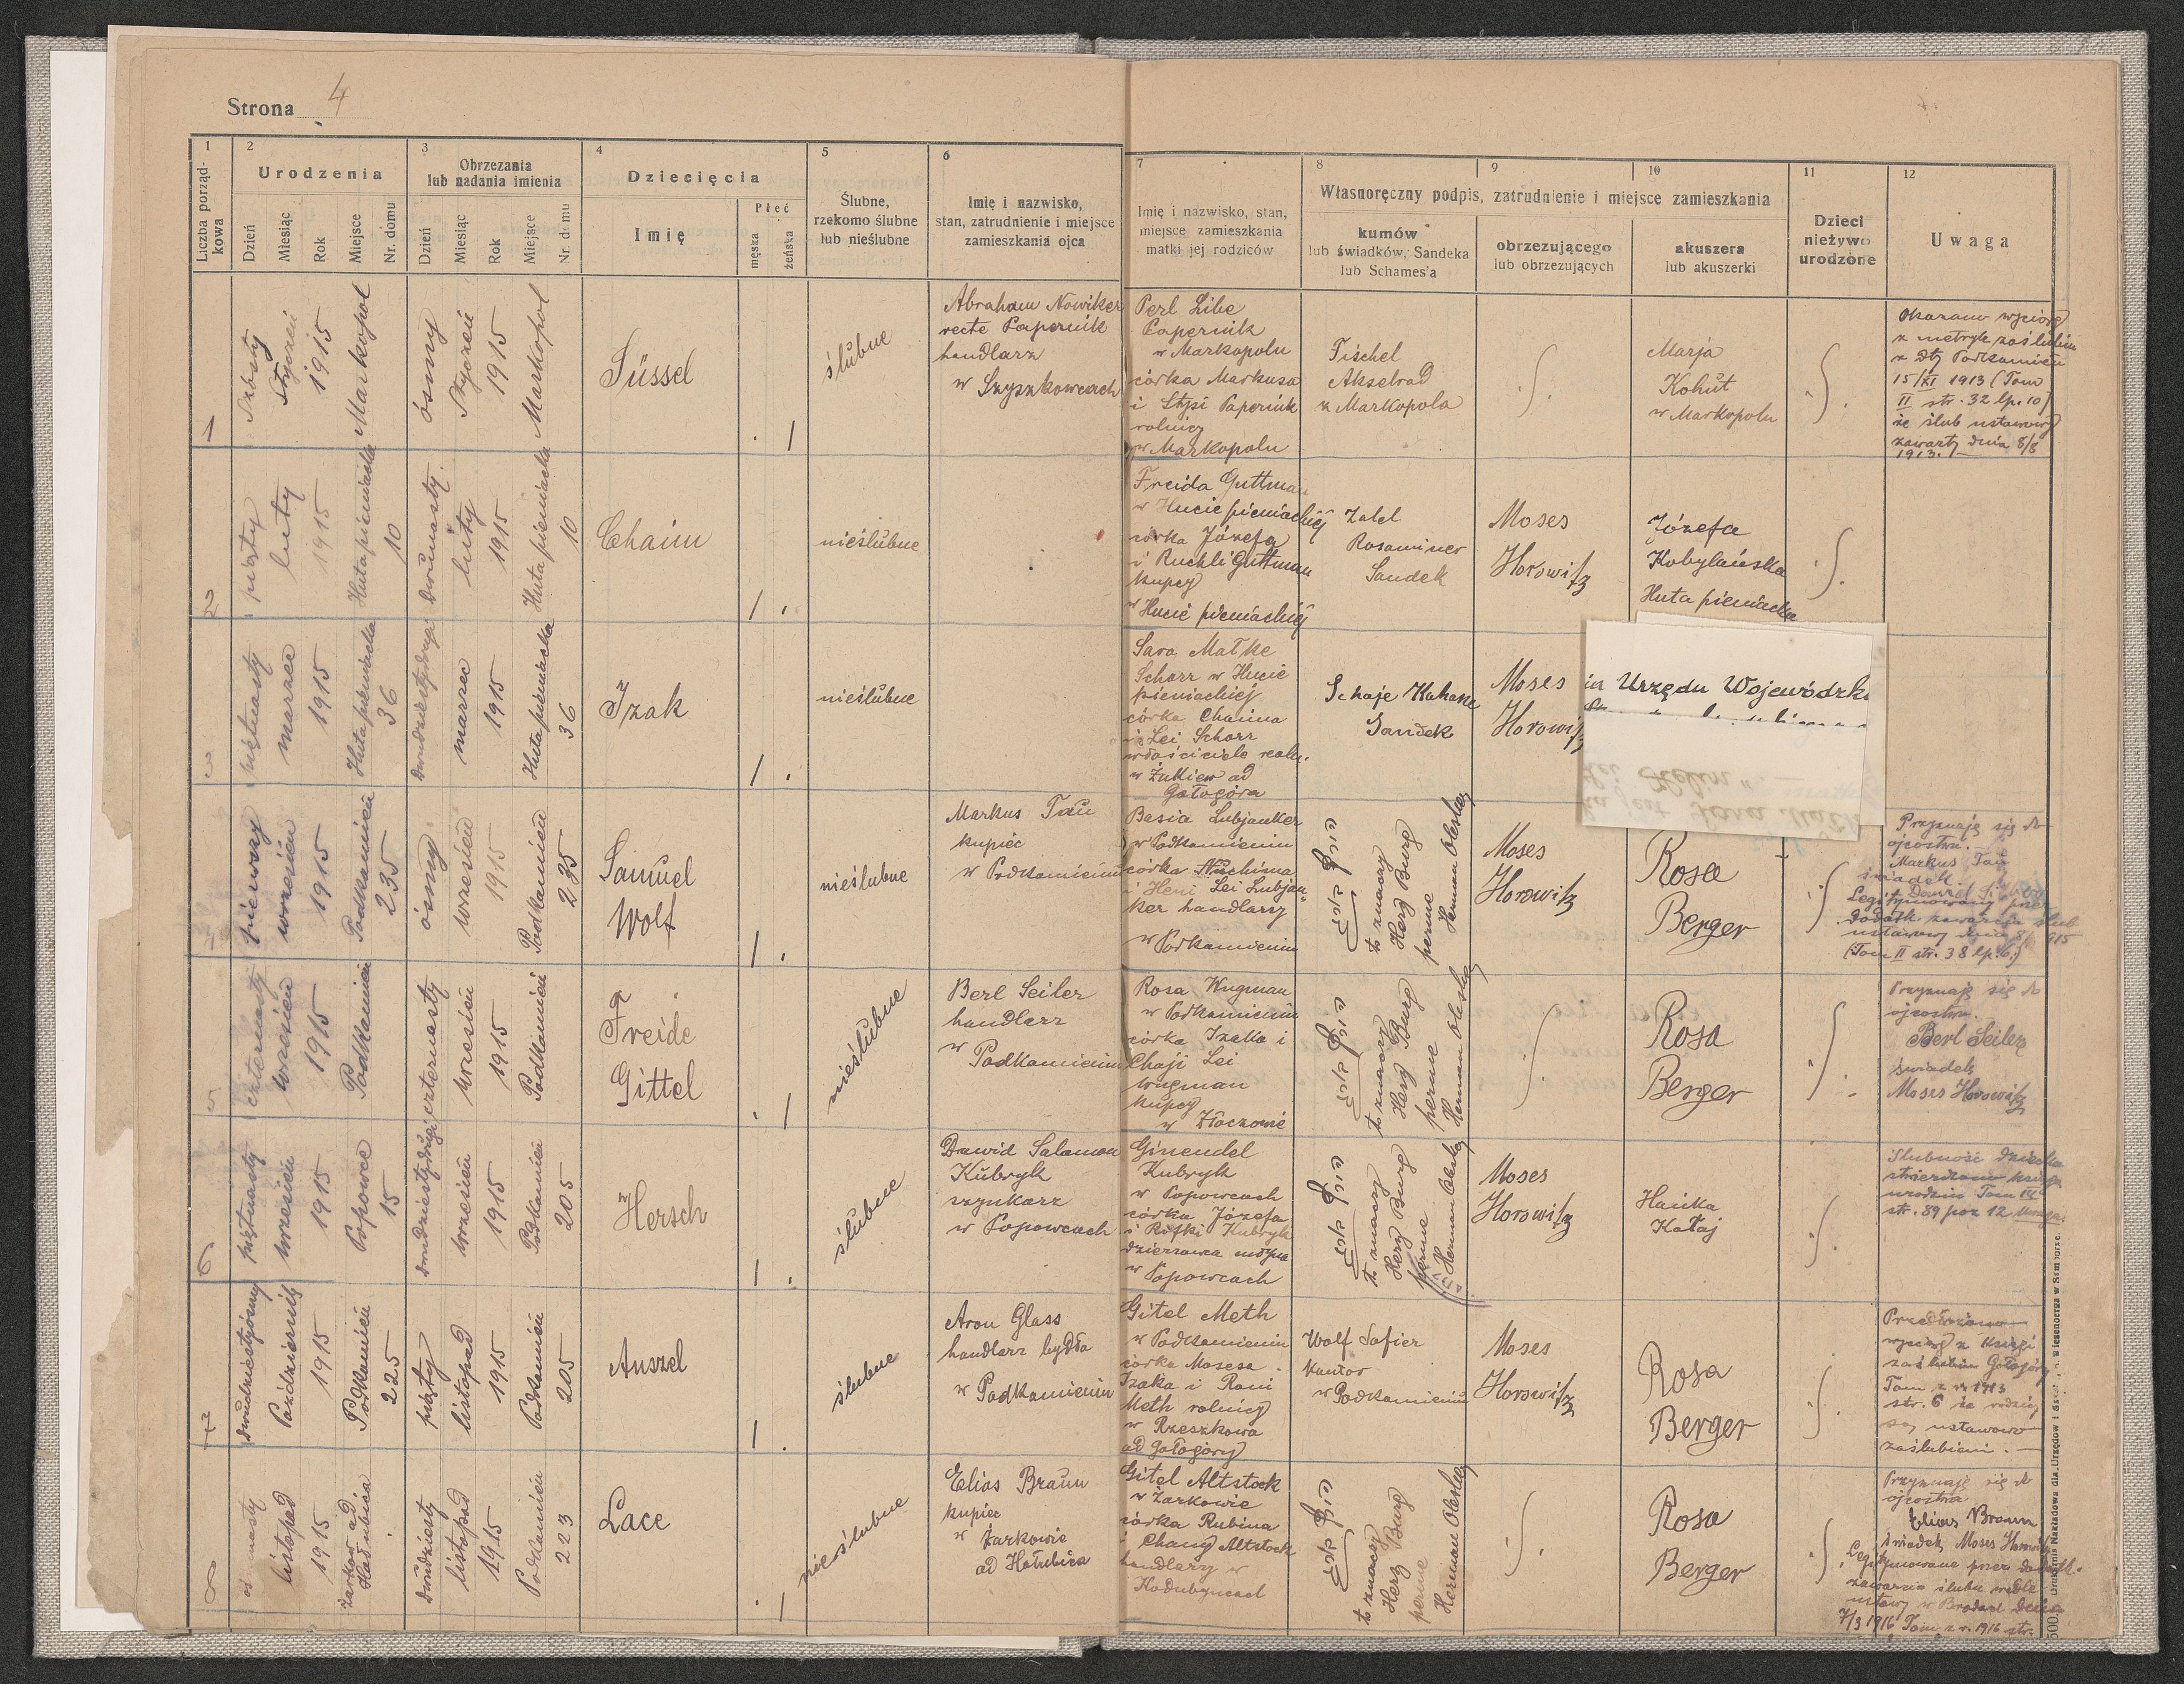 Strona 4
1
Liczba porząd-
kowa
2
Urodzenia
Dzień
Miesiąc
Rok
Miejsce
Nr. domu
3
Obrzezania
lub nadania imienia
Dzień
Miesiąc
Rok
Miejsce
Nr. domu
4
Dziecięcia
Imię
Płeć
męska
żeńska
5
Ślubne,
rzekomo ślubne
lub nieślubne
6
Imię i nazwisko,
stan, zatrudnienie i miejsce
zamieszkania ojca
7
Imię i nazwisko, stan,
miejsce zamieszkania
matki jej rodziców
8
9
10
Własnoręczny podpis, zatrudnienie i miejsce zamieszkania
kumów
lub świadków, Sandeka
lub Schames'a
obrzezującego
lub obrzezujących
akuszera
lub akuszerki
11
Dzieci
nieżywo
urodzone
12
Uwaga
1
Szósty
Styczeń
1915
Markopol
ósmy
Styczeń
1915
Markopol
Süssel
ślubne
Abraham Nowiker
recte Papernik
handlarz
w Szyszkowcach
Perl Libe
Papernik
w Markopolu
córka Markusa
i Papernik
rolnicy
w Markopolu
Fischel
Akselrad
z Markopola
Marja
Kohut
w Markopolu
Okazano wyciąg
z metryk zaślubin
z Podkamień
15/XI 1913 (Tom
II str. 32 lp. 10)
że ślub ustawowy
zawarty dnia 8/8
1913.
2
piąty
luty
1915
Huta pieniacka
10
dwunasty
luty
1915
Huta pieniacka
10
Chaim
nieślubne
Freida Guttman
w Hucie pieniackiej
córka Józefa
i Ruchli Guttman
kupcy
w Hucie pieniackiej
Zalel
Rosaminer
Sandek
Moses
Horowitz
Józefa
Kobylańska
Huta pieniacka
3
piętnasty
marzec
1915
Huta pieniacka
36
dwudziestydrugi
marzec
1915
Huta pieniacka
36
Izak
nieślubne
Sara Małke
Schorr w Hucie
pieniackiej
córka Chaima
i Lei Schorr
właściciele realn.
w Żukiew ad
Gołogóra
Schaje Kahane
Sandek
Moses
Horowitz
Urzędu Wojewódzk
4
pierwszy
wrzesień
1915
Podkamień
235
ósmy
wrzesień
1915
Podkamień
235
Samuel
Wolf
nieślubne
Markus Tau
kupiec
w Podkamieniu
Basia Lubjanker
w Podkamieniu
córka Nuchima
i Heni Lei Lubjan-
ker handlarzy
w Podkamieniu
to znaczy
Herz Burg
perme
Herman Olesker
Moses
Horowitz
Rosa
Berger
Przyznaję się do
ojcostwa.
Markus Tau
świadek
Legitymowany przez
dodatk. zawarcie ślub
ustawowy dnia 1915
(Tom II str. 38 lp. 6.)
5
czternasty
wrzesień
1915
Podkamień
czternasty
wrzesień
1915
Podkamień
Freide
Gittel
nieślubne
Berl Seiler
handlarz
w
Podkamieniu
Rosa Wugman
w Podkamieniu
córka Izaka i
Chaji Lei
Wugman
kupcy
w Złoczowie
to znaczy
Herz Burg
perme
Herman Olesker
Rosa
Berger
Przyznaję się do
ojcostwa.
Berl Seiler
świadek
Moses Horowitz
6
piętnasty
wrzesień
1915
Popowce
15
dwudziestydrugi
wrzesień
1915
Podkamień
205
Hersch
ślubne
Dawid Salamon
Kubryk
szynkarz
w Popowcach
Ginendel
Kubryk
w Popowcach
córka Józefa
i Rifki Kubryk
dzierżawca młyna
w Popowcach
to znaczy
Herz Burg
perme
Herman Olesker
Moses
Horowitz
Hańka
Kataj
Ślubność dziecka
stwierdzono księgą
urodzin Tom
str. 89 poz 12
7
dwudziestyósmy
Październik
1915
Podkamień
225
piąty
listopad
1915
Podkamień
205
Anszel
ślubne
Aron Glass
handlarz bydła
w Podkamieniu
Gitel Meth
w Podkamieniu
córka Mosesa
Izaka i Rani
Meth rolnicy
w Rzeszkowa
ad Gołogóry
Wolf Safier
kantor
w Podkamieniu
Moses
Horowitz
Rosa
Berger
Przedłożono
wyciąg z księgi
zaślubin Gołogóry
Tom z r. 1913
str. 6 że rodzice
są ustawowo
zaślubieni.
8
listopad
1915
Żarków ad
Hołubica
dwudziesty
listopad
1915
Podkamień
223
Lace
nieślubne
Elias Braun
kupiec
w
Żarkowie
ad Hołubica
Gitel Altstock
w Żarkowie
córka Rubina
i Chany Altstock
handlarzy w
Kadubyncach
to znaczy
Herz Burg
perme
Herman Olesker
Rosa
Berger
Przyznaję się do
ojcostwa
Elias Braun
świadek Moses Horowitz
Legitymowane przez dodatk.
zawarcie ślubu wedle
ustawy w Brodach dnia
7/3 1916 Tom z r. 1916 str.